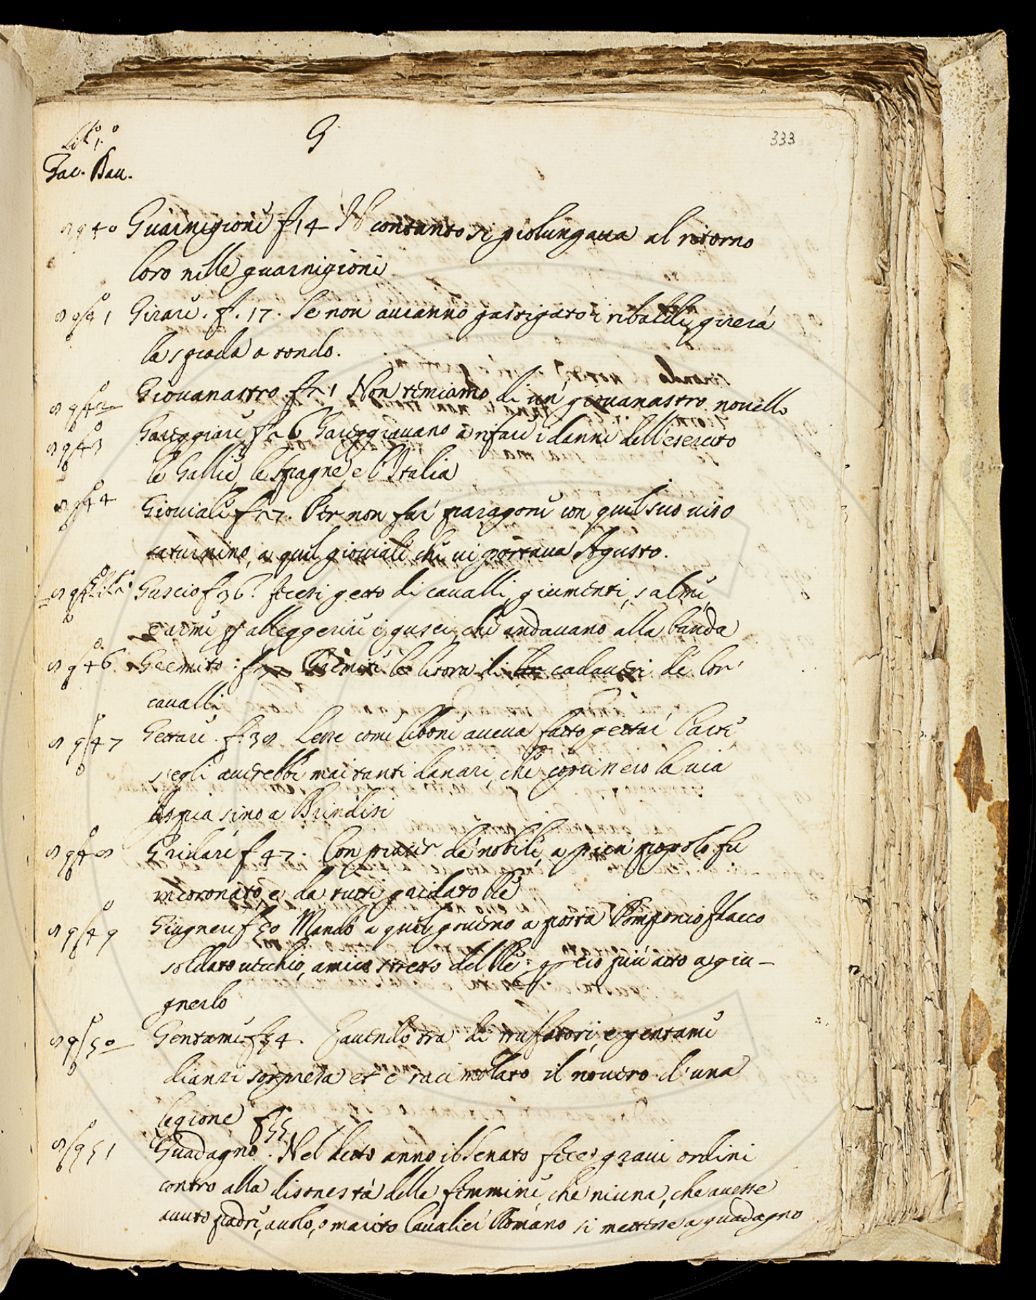 G
333
Lib. 1.°
Tac. Dav.
Guarnigioni f. 14 Il contanto si prolungava al ritorno
loro nelle guarnigioni
Girare. f. 17. Se non avranno gastigato i ribaldi, girerà
la spada a tondo.
Giovanastro f. 21 Non temiamo di un giovanastro novello
Gareggiare f. 26 Gareggiavano a rifare i danni dell'esercito
le Gallie, le Spagne, e l'Italia
Gioviale f. 27. Per non far paragone con quel suo viso
saturnino, a quel gioviale che vi portava Agusto.
Guscio f. 36. fecesi getto di cavalli, giumenti, salme,
e arme p alleggerire i gusci, che andavano alla banda
Gremito: f. 37 Gremite le litora di cadaveri de lor
cavalli
Gettare. f. 38 Lesse come Libone aveva fatto gettar l'arte
s'egli avrebbe mai tanti danari, che coprissero la via
Appia sino a Brindisi
Gridare f. 47. Con piacer de nobili, a pien popolo fu
incoronato, e da tutti gridato Re
Giugnere f. 50 Mandò a quel governo a posta Pomponio Flacco
soldato vecchio, amico stretto del Re: p ciò più atto a giu-
gnerlo
Gentame f. 54. Havendo tra di truffatori, e gentame
dianzi sopresa et è racimolato il novero d'una
legione
Guadagno f. 55. Nel detto anno il Senato fece gravi ordini
contro alla disonestà delle femmine che niuna, che avesse
avuto padre, avolo, o marito Cavalier Romano si mettesse a guadagno